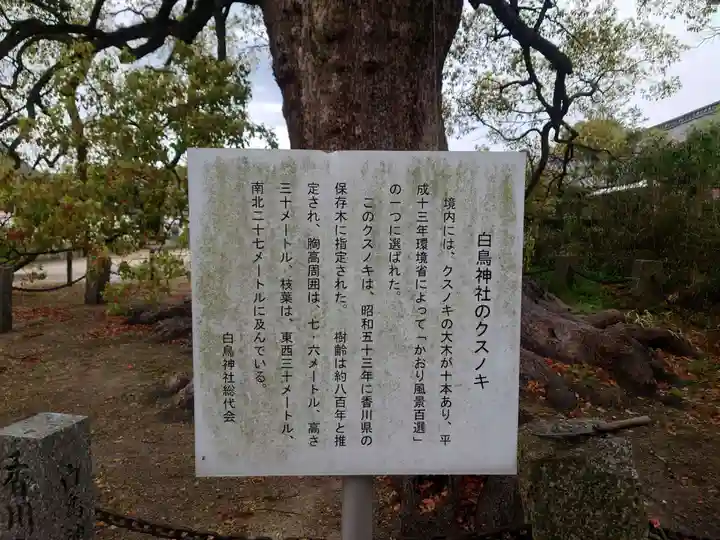 白鳥神社のクスノキ
境内には、クスノキの大木が十本あり、平
成十三年環境省によって「かおり風景百選」
の一つに選ばれた。
このクスノキは、昭和五十三年に香川県の
保存木に指定された。 樹齢は約八百年と推
定され、胸高周囲は、七・六メートル、高さ
三十メートル、枝葉は、東西三十メートル、
南北二十七メートルに及んでいる。
白鳥神社総代会
香川
白鳥